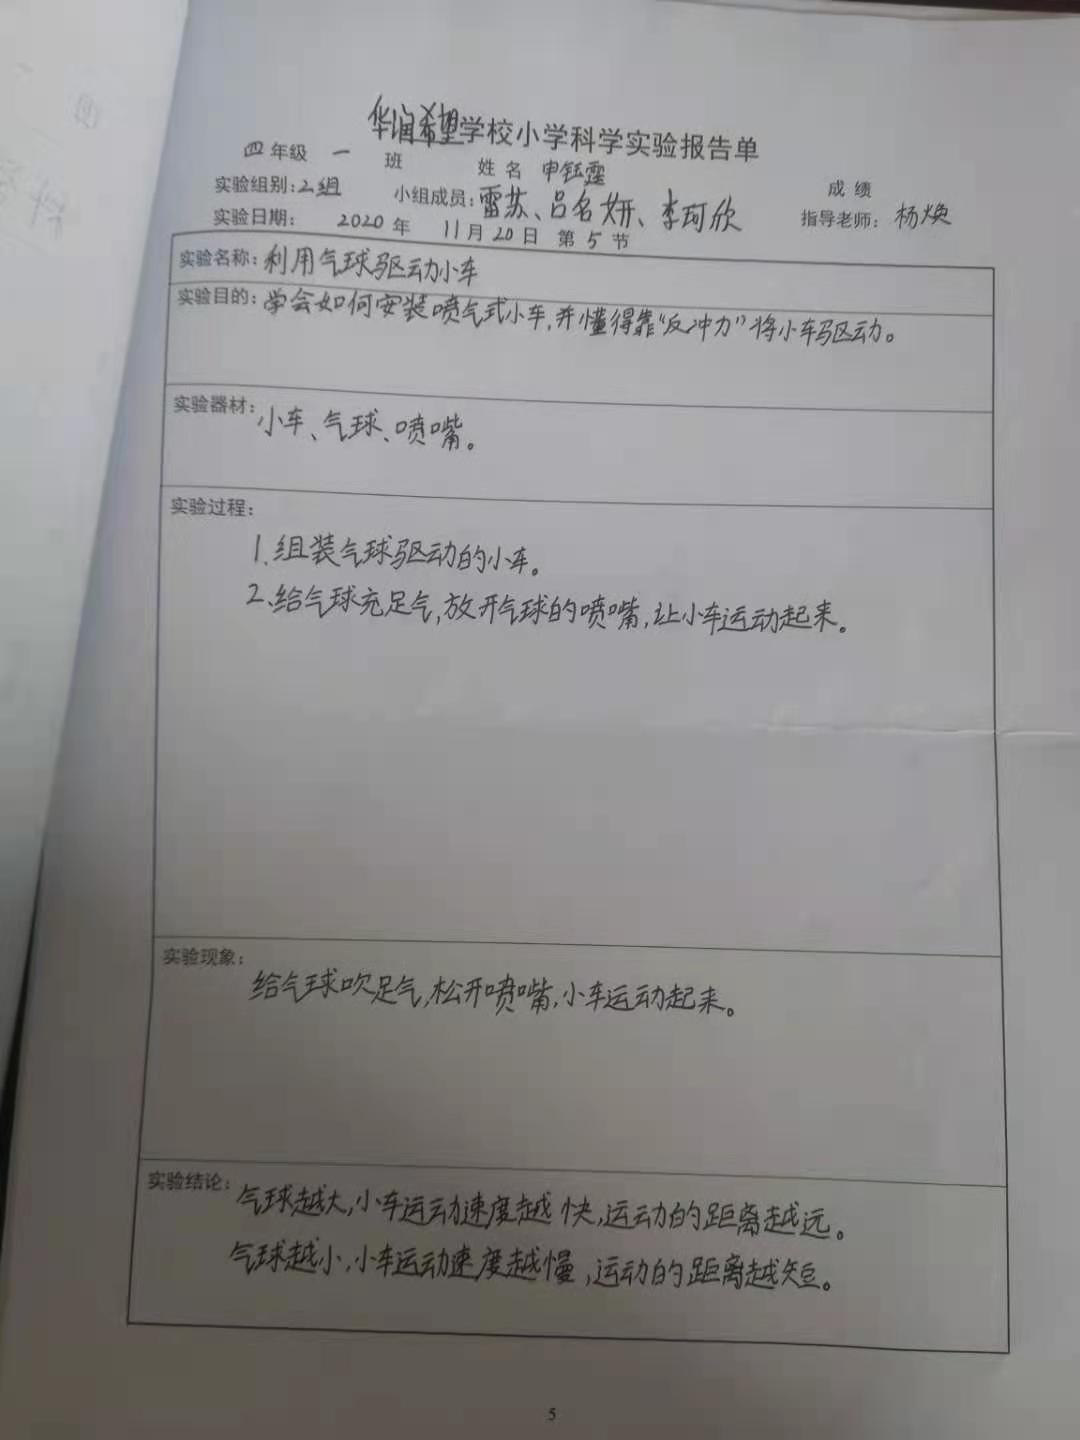 华润希望学校小学科学实验报告单
四年级 一 班 姓名 申钰霆 成绩
实验组别:2组 小组成员:雷苏、吕名妍、李珂欣 指导老师:杨焕
实验日期: 2020年 11月20日 第5节
实验名称:利用气球驱动小车
实验目的:学会如何安装喷气式小车,并懂得靠“反冲力”将小车驱动。
实验器材:小车、气球、喷嘴。
实验过程:
1.组装气球驱动的小车。
2.给气球充足气,放开气球的喷嘴,让小车运动起来。
实验现象:
给气球吹足气,松开喷嘴,小车运动起来。
实验结论:气球越大,小车运动速度越快,运动的距离越远。
气球越小,小车运动速度越慢,运动的距离越短。
5